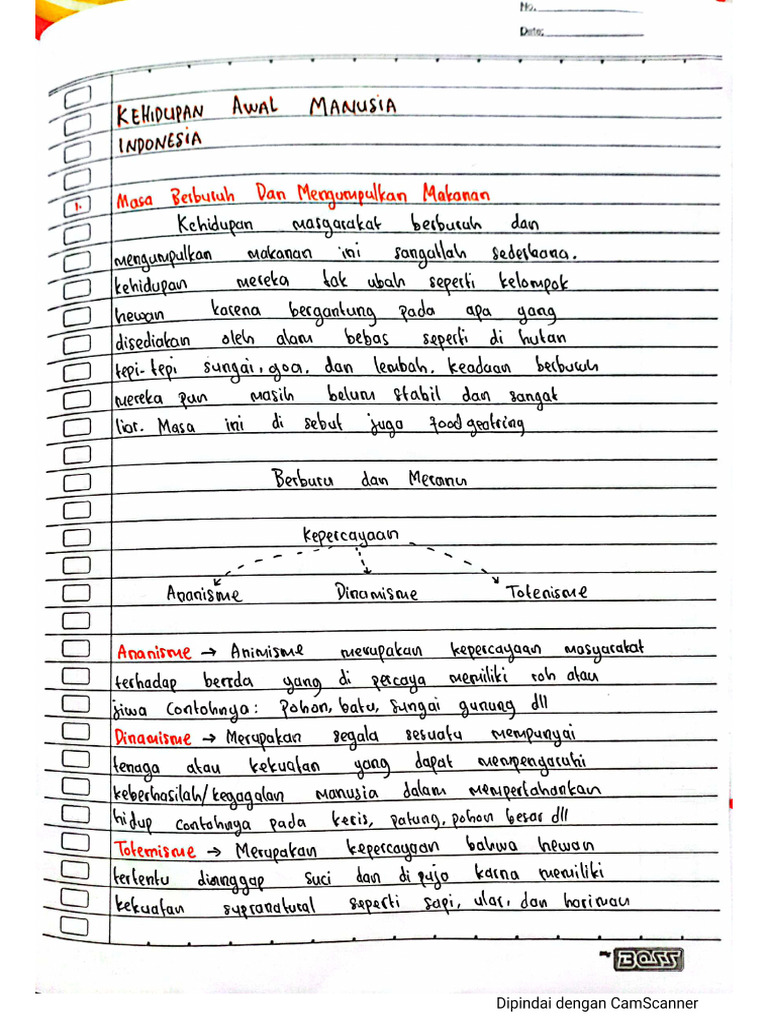 No.
Date:
KEHIDUPAN AWAL MANUSIA
INDONESIA
1. Masa Berburuh Dan Mengumpulkan Makanan
Kehidupan masgarakat berburuh dan
mengumpulkan makanan ini sangatlah sederhana.
kehidupan mereka tak ubah seperti kelompok
hewan karena bergantung pada apa yang
disediakan oleh alam bebas seperti di hutan
tepi-tepi sungai, goa, dan lembah. keadaan berburuh
mereka pun masih belum stabil dan sangat
liar. Masa ini di sebut juga food geatring
Berburu dan Meramu
kepercayaan
Ananisme Dinamisme Totenisme
Ananisme → Animisme merupakan kepercayaan masyarakat
terhadap benda yang di percaya memiliki roh atau
jiwa Contohnya: Pohon, batu, Sungai gunung dll
Dinamisme → Merupakan segala sesuatu mempunyai
tenaga atau kekuatan yang dapat mempengaruhi
keberhasilah/kegagalan manusia dalam mempertahankan
hidup contohnya pada keris, patung, pohon besar dll
Totemisme → Merupakan kepercayaan bahwa hewan
tertentu dianggap suci dan di puja karna memiliki
kekuatan supranatural seperti sapi, ular, dan harimau
BOSS
Dipindai dengan CamScanner